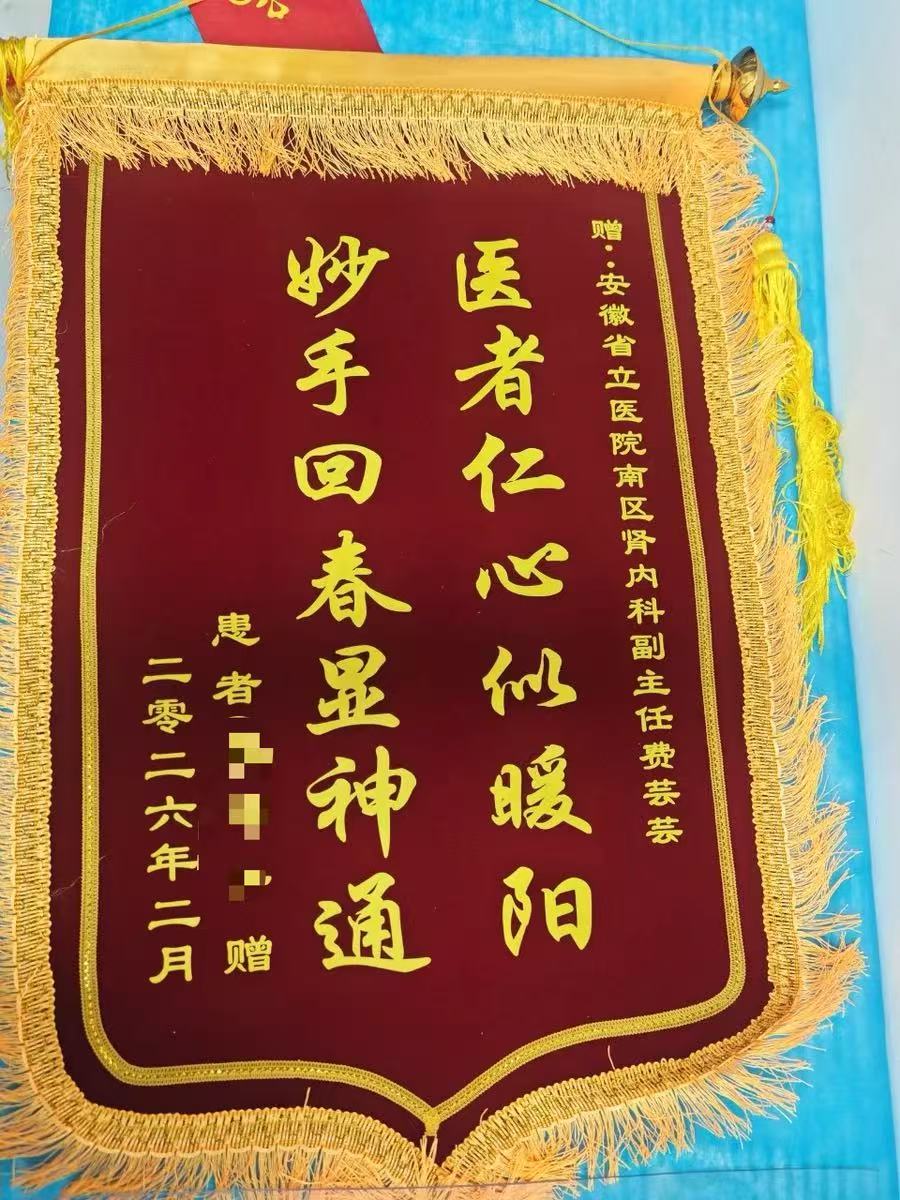 赠：安徽省立医院南区肾内科副主任费芸芸
医者仁心似暖阳
妙手回春显神通
患者 赠
二零二六年二月